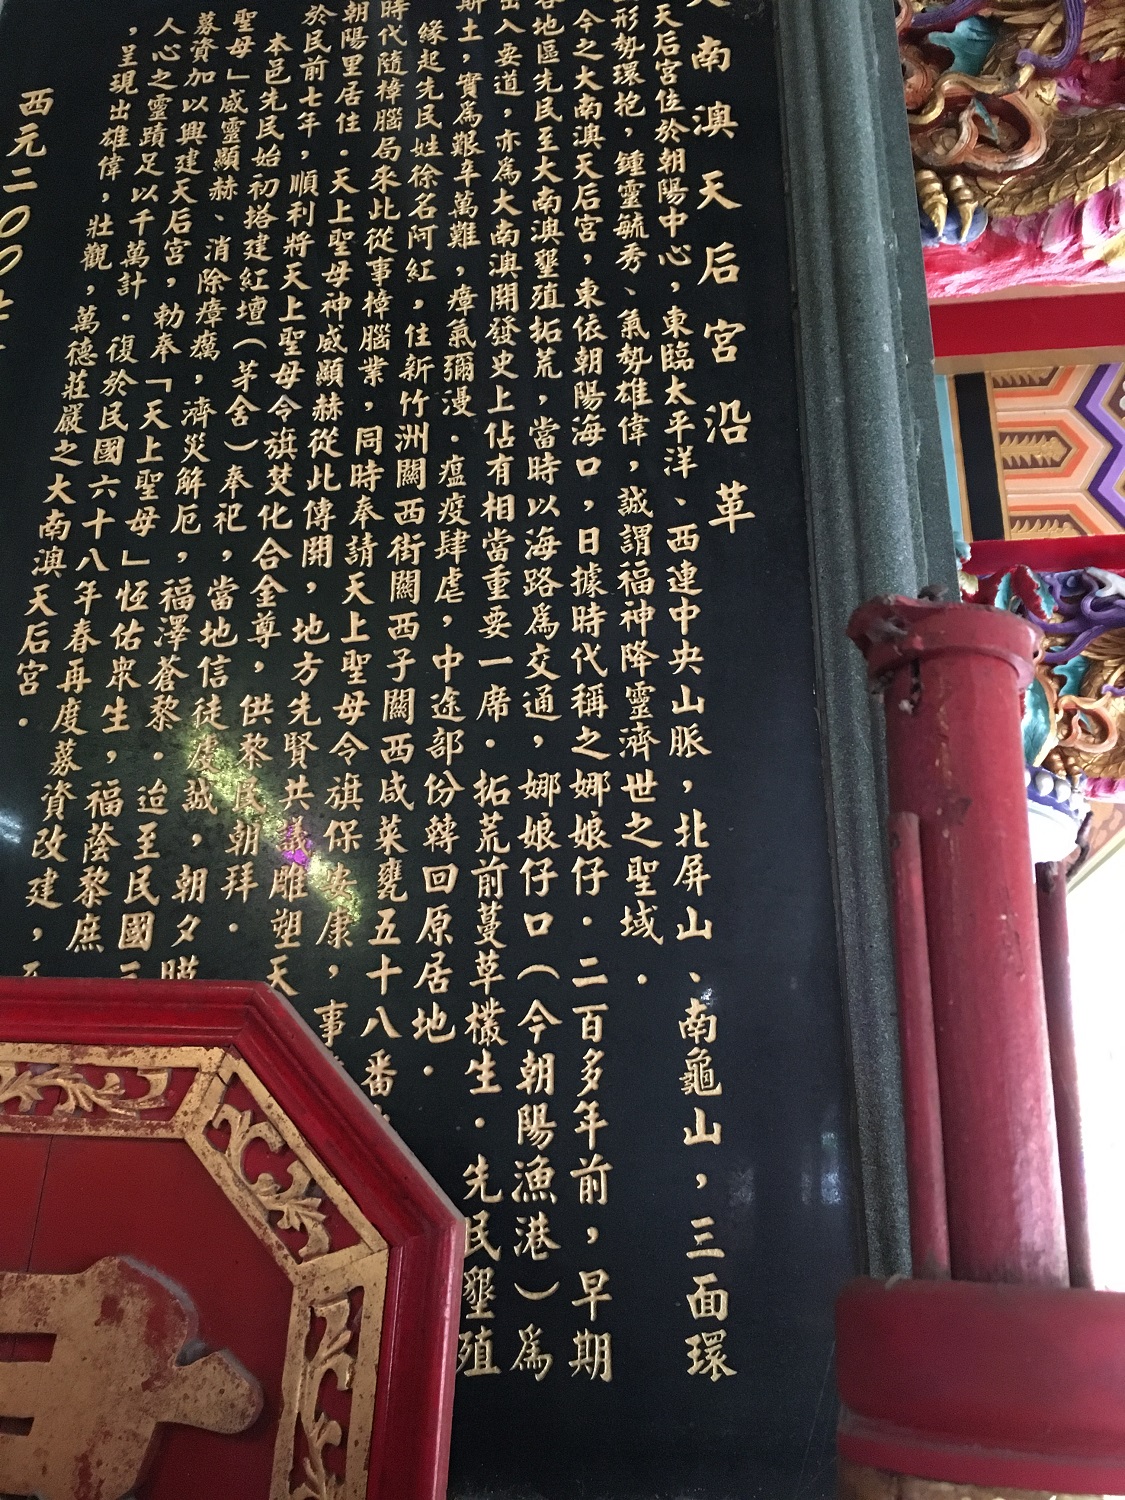 南澳天后宮沿革
天后宮位於朝陽中心，東臨太平洋、西連中央山脈，北屏山、南龜山，三面環
形勢環抱，鍾靈毓秀、氣勢雄偉，誠謂福神降靈濟世之聖域．
今之大南澳天后宮，東依朝陽海口，日據時代稱之娜娘仔．二百多年前，早期
地區先民至大南澳墾殖拓荒，當時以海路為交通，娜娘仔口（今朝陽漁港）為
出入要道，亦為大南澳開發史上佔有相當重要一席．拓荒前蔓草欉生．先民墾殖
斯土，實為艱辛萬難，瘴氣彌漫．瘟疫肆虐，中途部份轉回原居地．
緣起先民姓徐名阿紅，住新竹洲關西街關西子關西咸菜甕五十八番
時代隨樟腦局來此從事樟腦業，同時奉請天上聖母令旗保安康，事
朝陽里居住．天上聖母神威顯赫從此傳開，地方先賢共議雕塑天
於民前七年，順利將天上聖母令旗焚化合金尊，供黎民朝拜．
本邑先民始初搭建紅壇（茅舍）奉祀，當地信徒虔誠，朝夕膜
聖母」威靈顯赫、消除瘴癘，濟災解厄，福澤蒼黎．迨至民國三
募資加以興建天后宮，勅奉「天上聖母」恆佑眾生，福蔭黎庶
人心之靈蹟足以千萬計．復於民國六十八年春再度募資改建，
，呈現出雄偉，壯觀，萬德莊嚴之大南澳天后宮．
西元二００